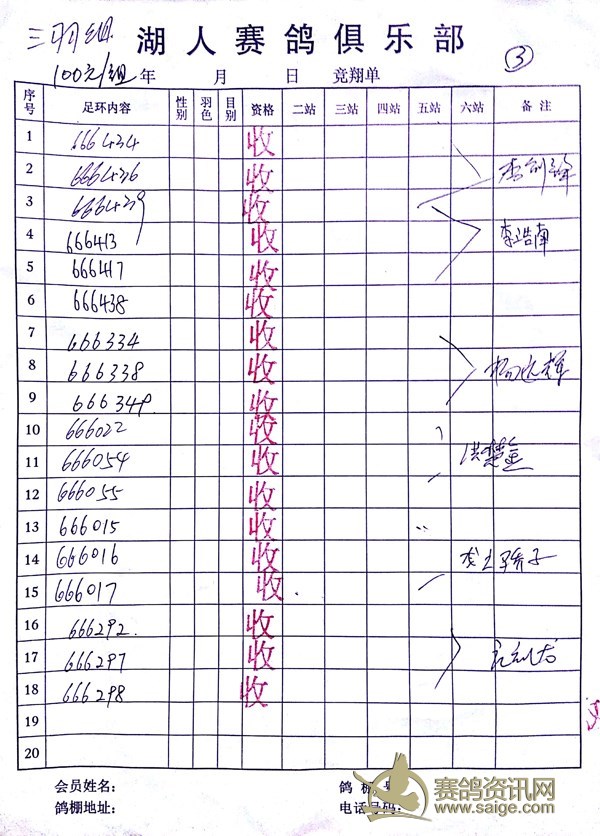 三羽组 湖人赛鸽俱乐部
100元/组 年 月 日 竞翔单 ③
序号 足环内容 性别 羽色 目别 资格 二站 三站 四站 五站 六站 备注
1 666434 收
2 666436 收
3 666439 收
4 666413 收 李浩南
5 666417 收
6 666438 收
7 666334 收
8 666338 收
9 666349 收
10 666022 收
11 666054 收
12 666055 收
13 666015 收
14 666016 收
15 666017 收
16 666292 收
17 666297 收
18 666298 收
19
20
会员姓名: 鸽棚号:
鸽棚地址: 电话号码:
赛鸽资讯网
www.saige.com